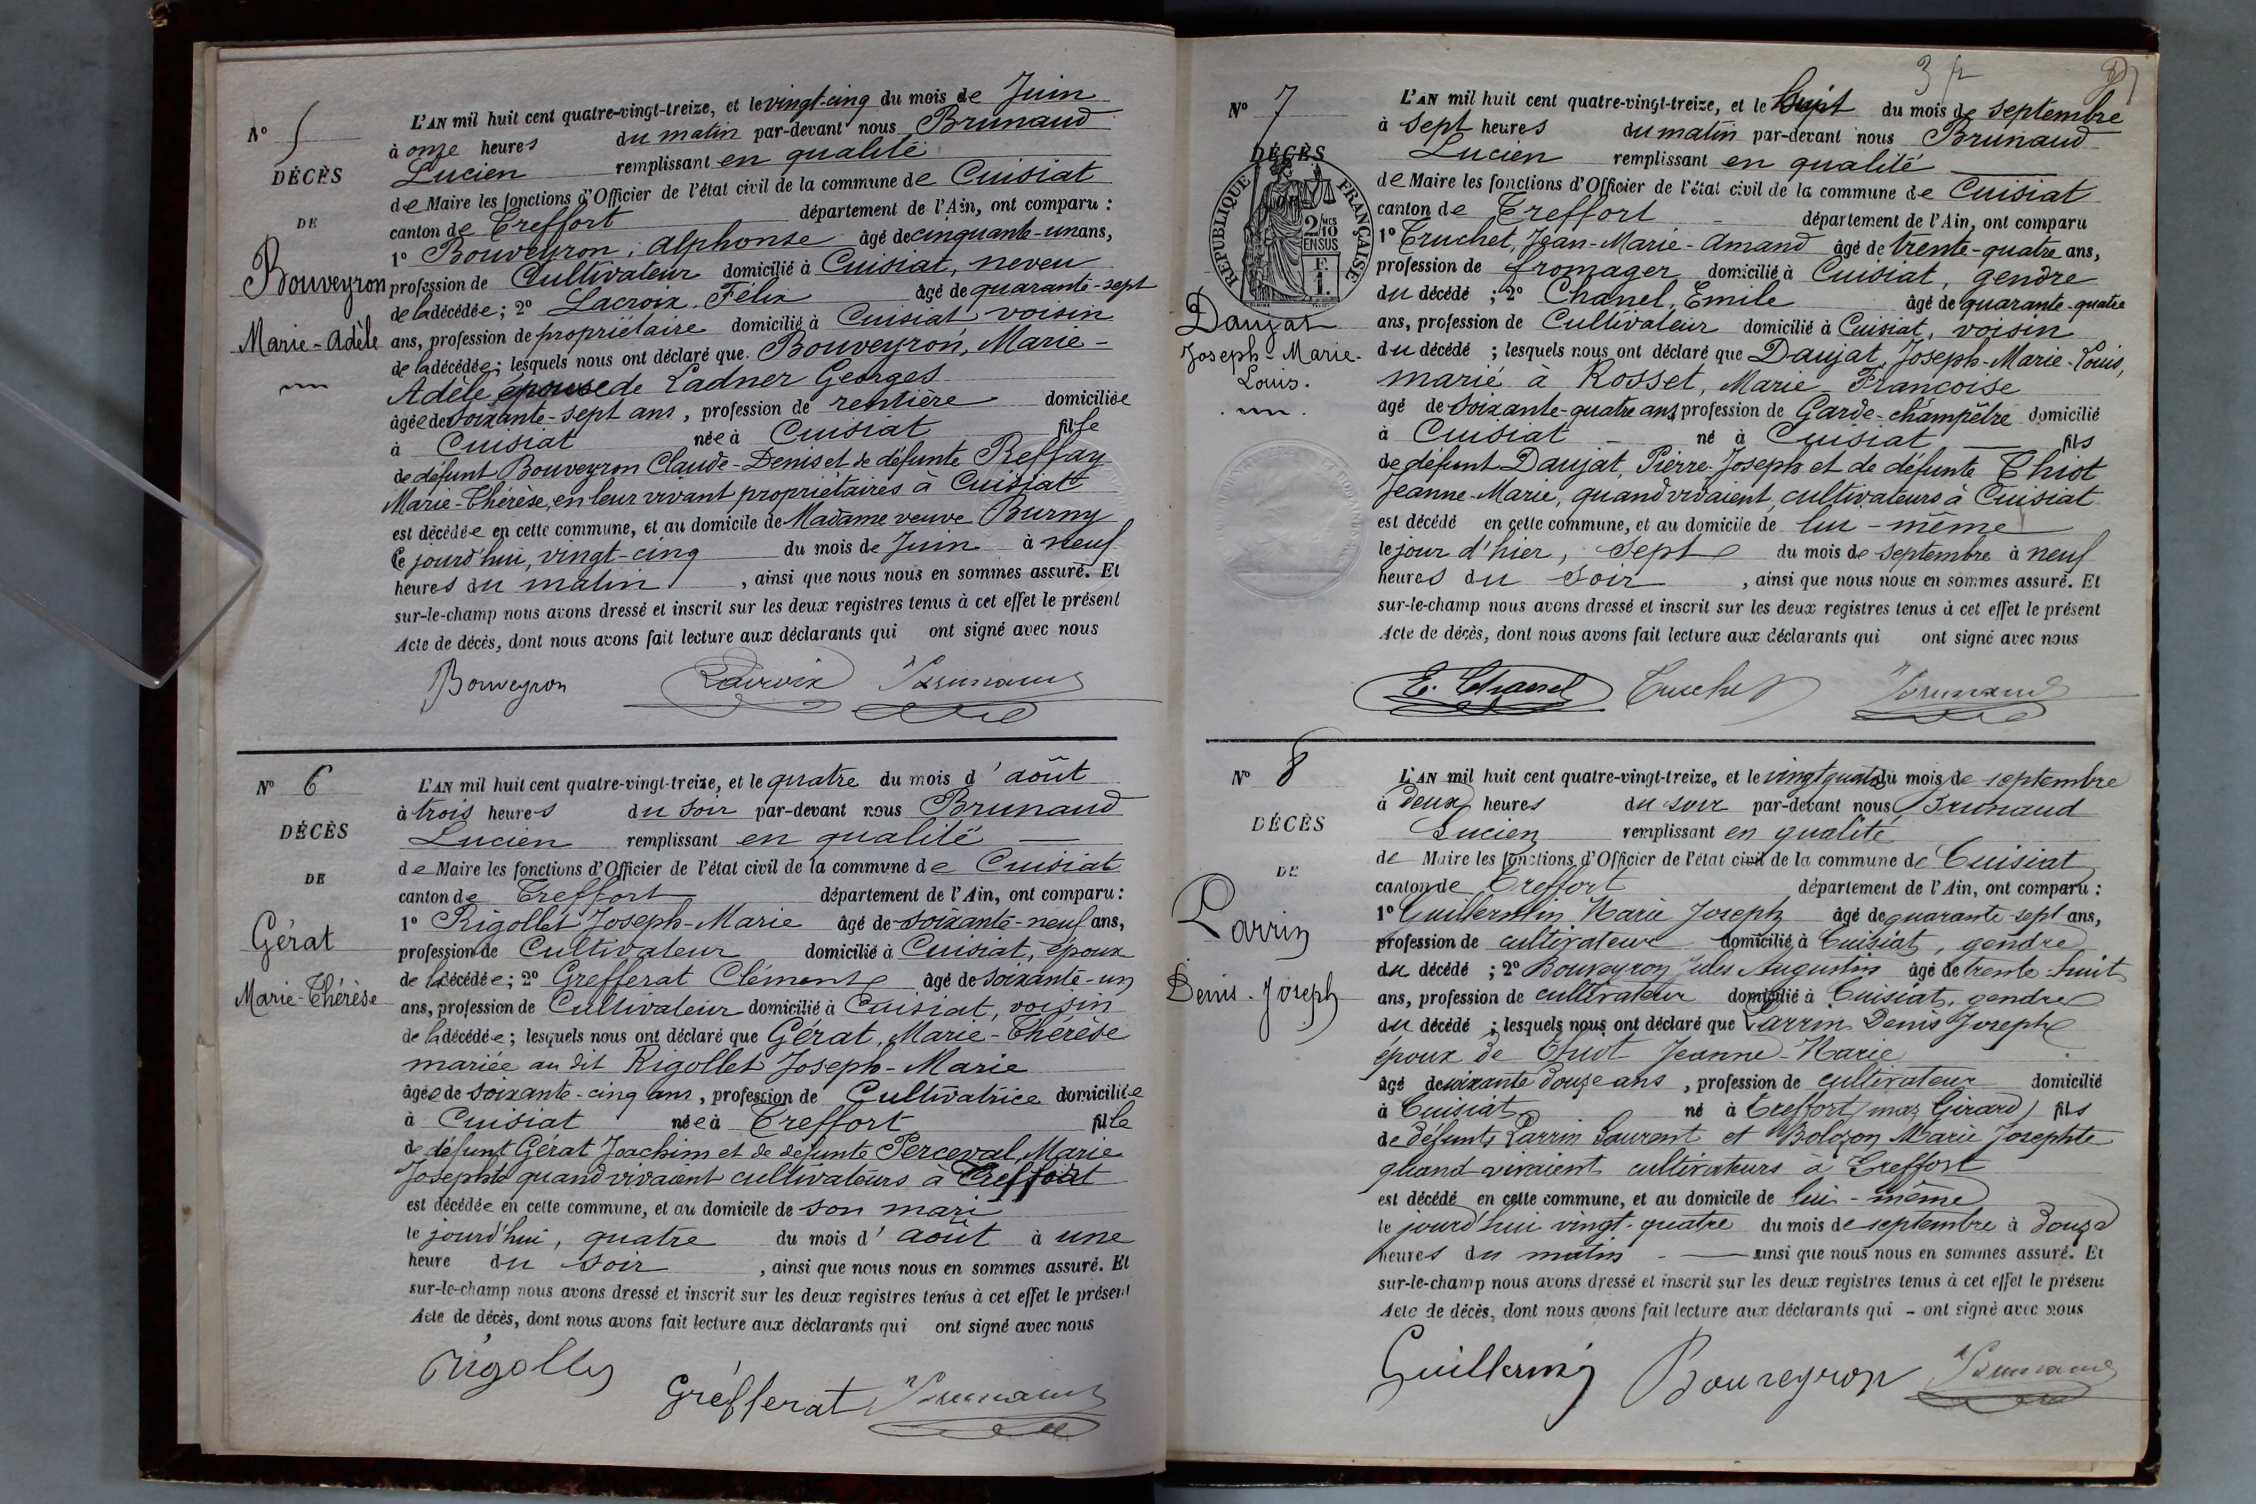 N° 5
DÉCÈS
DE
Bouveyron
Marie-Adèle
L'AN mil huit cent quatre-vingt-treize, et le vingt-cinq du mois de Juin
à onze heures du matin par-devant nous Brunaud
Lucien remplissant en qualité
de Maire les fonctions d'Officier de l'état civil de la commune de Cuisiat
canton de Treffort département de l'Ain, ont comparu :
1° Bouveyron, Alphonse âgé de cinquante-un ans,
profession de Cultivateur domicilié à Cuisiat, neveu
de la décédée ; 2° Lacroix Félix âgé de quarante-sept
ans, profession de propriétaire domicilié à Cuisiat voisin
de la décédée ; lesquels nous ont déclaré que Bouveyron, Marie-
Adèle épouse de Ladner Georges
âgée de soixante-sept ans, profession de rentière domiciliée
à Cuisiat née à Cuisiat fille
de défunt Bouveyron Claude-Denis et de défunte Reffay
Marie-Thérèse, en leur vivant propriétaires à Cuisiat
est décédée en cette commune, et au domicile de Madame veuve Burny
ce jourd'hui, vingt-cinq du mois de Juin à neuf
heures du matin, ainsi que nous nous en sommes assuré. Et
sur-le-champ nous avons dressé et inscrit sur les deux registres tenus à cet effet le présent
Acte de décès, dont nous avons fait lecture aux déclarants qui ont signé avec nous
Bouveyron Lacroix Brunaud
N° 6
DÉCÈS
DE
Gérat
Marie-Thérèse
L'AN mil huit cent quatre-vingt-treize, et le quatre du mois d'août
à trois heures du soir par-devant nous Brunaud
Lucien remplissant en qualité
de Maire les fonctions d'Officier de l'état civil de la commune de Cuisiat
canton de Treffort département de l'Ain, ont comparu :
1° Rigollet Joseph-Marie âgé de soixante-neuf ans,
profession de Cultivateur domicilié à Cuisiat, époux
de la décédée ; 2° Grefferat Clément âgé de soixante-un
ans, profession de Cultivateur domicilié à Cuisiat, voisin
de la décédée ; lesquels nous ont déclaré que Gérat, Marie-Thérèse
mariée au dit Rigollet Joseph-Marie
âgée de soixante-cinq ans, profession de Cultivatrice domiciliée
à Cuisiat née à Treffort fille
de défunt Gérat Joachim et de défunte Perceval, Marie
Josephte quand vivaient cultivateurs à Treffort
est décédée en cette commune, et au domicile de son mari
le jourd'hui, quatre du mois d'août à une
heure du soir, ainsi que nous nous en sommes assuré. Et
sur-le-champ nous avons dressé et inscrit sur les deux registres tenus à cet effet le présent
Acte de décès, dont nous avons fait lecture aux déclarants qui ont signé avec nous
Rigollet Grefferat Brunaud
N° 7
DÉCÈS
RÉPUBLIQUE FRANÇAISE
2/10
EN SUS
Daujat
Joseph-Marie-
Louis.
L'AN mil huit cent quatre-vingt-treize, et le huit du mois de septembre
à sept heures du matin par-devant nous Brunaud
Lucien remplissant en qualité
de Maire les fonctions d'Officier de l'état civil de la commune de Cuisiat
canton de Treffort département de l'Ain, ont comparu
1° Truchet, Jean-Marie-Amand âgé de trente-quatre ans,
profession de fromager domicilié à Cuisiat, gendre
du décédé ; 2° Chanel, Emile âgé de quarante-quatre
ans, profession de Cultivateur domicilié à Cuisiat, voisin
du décédé ; lesquels nous ont déclaré que Daujat, Joseph-Marie-Louis,
marié à Rosset, Marie-Françoise
agé de soixante-quatre ans, profession de Garde-champêtre domicilié
à Cuisiat né à Cuisiat fils
de défunt Daujat, Pierre-Joseph et de défunte Thiot
Jeanne-Marie, quand vivaient, cultivateurs à Cuisiat
est décédé en cette commune, et au domicile de lui-même
le jour d'hier, sept du mois de septembre à neuf
heures du soir, ainsi que nous nous en sommes assuré. Et
sur-le-champ nous avons dressé et inscrit sur les deux registres tenus à cet effet le présent
Acte de décès, dont nous avons fait lecture aux déclarants qui ont signé avec nous
E. Chanel Truchet Brunaud
N° 8
DÉCÈS
DE
Parrin
Denis-Joseph
L'AN mil huit cent quatre-vingt-treize, et le vingt quatre du mois de septembre
à deux heures du soir par-devant nous Brunaud
Lucien remplissant en qualité
de Maire les fonctions d'Officier de l'état civil de la commune de Cuisiat
canton de Treffort département de l'Ain, ont comparu :
1° Guillermin Marie Joseph âgé de quarante-sept ans,
profession de cultivateur domicilié à Cuisiat, gendre
du décédé ; 2° Bouveyron Jules Augustin âgé de trente-huit
ans, profession de cultivateur domicilié à Cuisiat, gendre
du décédé ; lesquels nous ont déclaré que Parrin Denis Joseph
époux de Thiot Jeanne-Marie
âgé de soixante douze ans, profession de cultivateur domicilié
à Cuisiat né à Treffort (maz Girard) fils
de défunts Parrin Laurent et Bolozon Marie Josephte
quand vivaient cultivateurs à Treffort
est décédé en cette commune, et au domicile de lui-même
le jourd'hui vingt-quatre du mois de septembre à douze
heures du matin ainsi que nous nous en sommes assuré. Et
sur-le-champ nous avons dressé et inscrit sur les deux registres tenus à cet effet le présent
Acte de décès, dont nous avons fait lecture aux déclarants qui - ont signé avec nous
Guillermin Bouveyron Brunaud